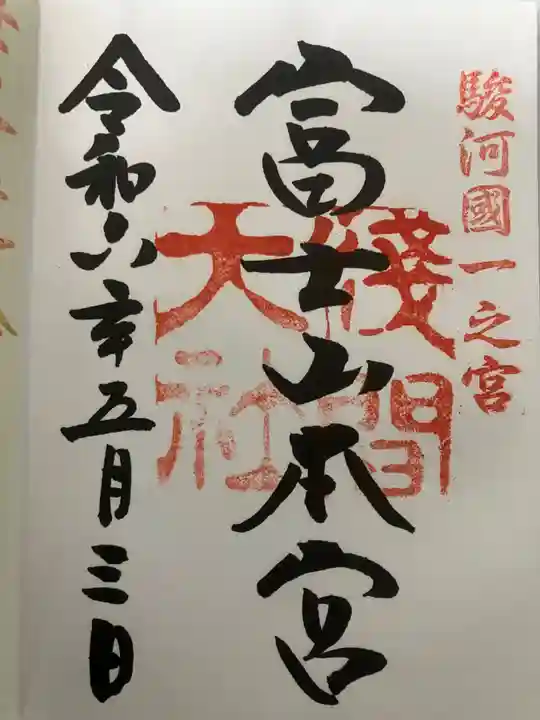 駿河國一之宮
富士山本宮
淺間
大社
令和六年五月三日